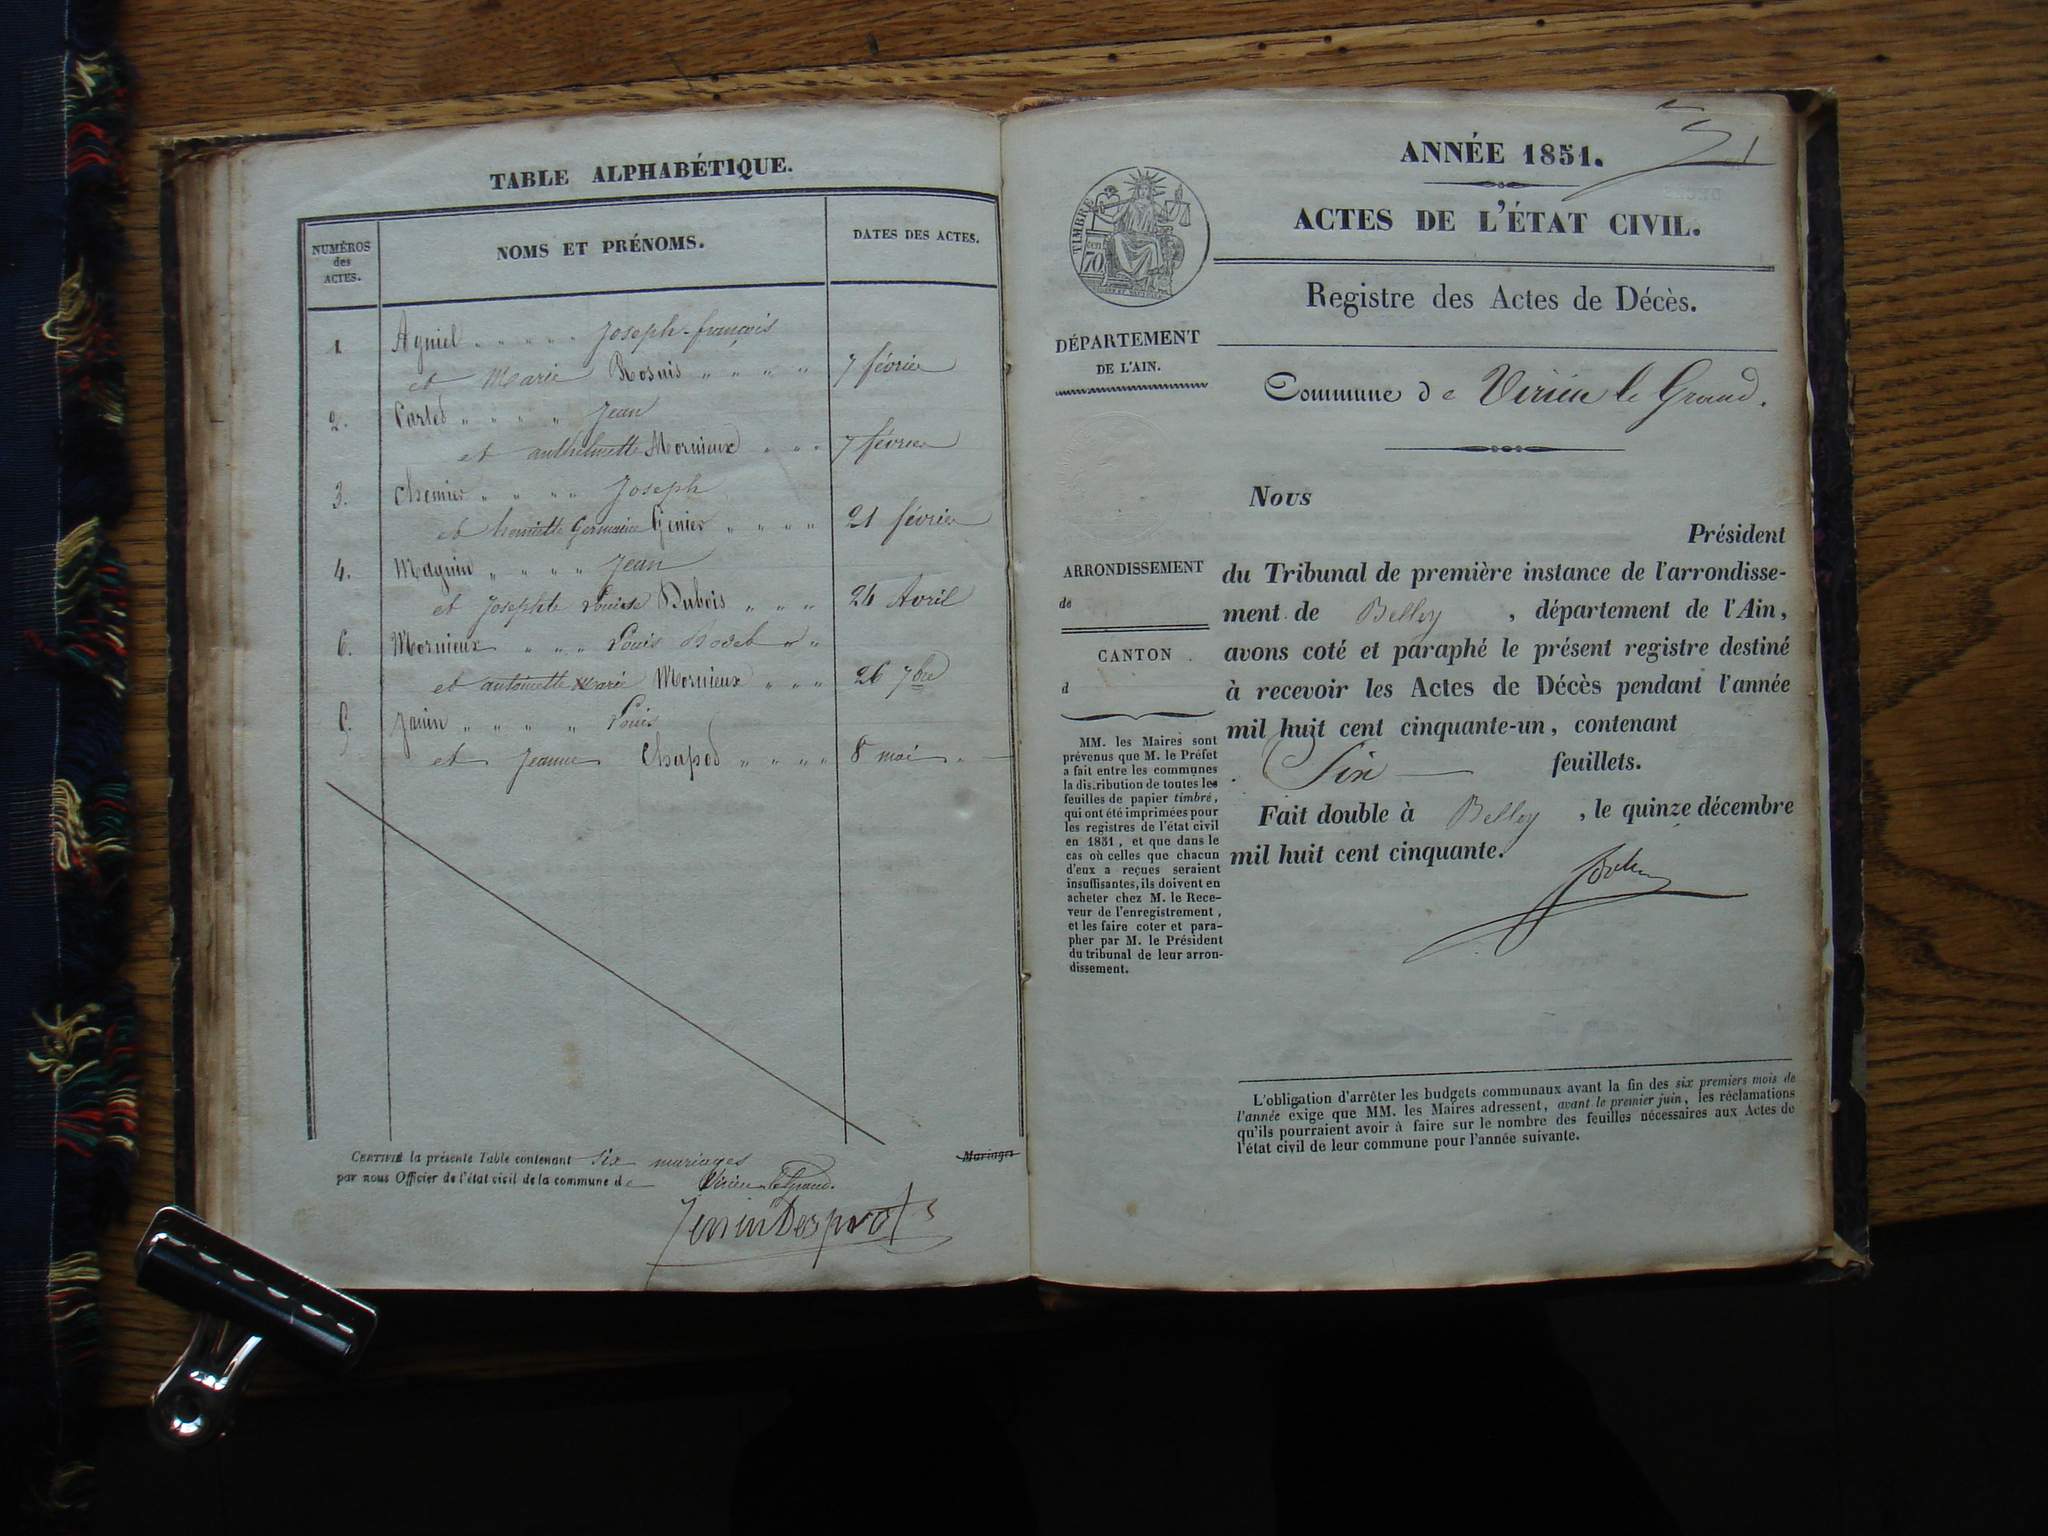 TABLE ALPHABÉTIQUE.
NUMÉROS
des
ACTES.
NOMS ET PRÉNOMS.
DATES DES ACTES.
1. Agniel " " " " " Joseph-françois
et Marie Rosnis " " " " 7 février
2. Carled " " " " Jean
et anthelmette Mornieux " " " 7 février
3. Chemier " " " " Joseph
et henriette Germaine Génier " " " " 21 février
4. Magnin " " " " Jean
et Josephte Louise Dubois " " " 24 Avril
6. Mornieux " " " Louis " "
et antoinette Marie Mornieux " " " 26 7bre
5. Janin " " " " Louis
et Jeanne Chapod " " " " 8 mai
CERTIFIÉ la présente Table contenant six mariages
Mariages
par nous Officier de l'état civil de la commune de Virieu le Grand.
ANNÉE 1851.
ACTES DE L'ÉTAT CIVIL.
TIMBRE
70 cent
Registre des Actes de Décès.
DÉPARTEMENT
DE L'AIN.
Commune de Virieu le Grand.
Nous
Président
du Tribunal de première instance de l'arrondisse-
ment de Belley , département de l'Ain,
avons coté et paraphé le présent registre destiné
à recevoir les Actes de Décès pendant l'année
mil huit cent cinquante-un, contenant
Six feuillets.
Fait double à Belley , le quinze décembre
mil huit cent cinquante.
ARRONDISSEMENT
de
CANTON
d
MM. les Maires sont
prévenus que M. le Préfet
a fait entre les communes
la distribution de toutes les
feuilles de papier timbré,
qui ont été imprimées pour
les registres de l'état civil
en 1851, et que dans le
cas où celles que chacun
d'eux a reçues seraient
insuffisantes, ils doivent en
acheter chez M. le Rece-
veur de l'enregistrement,
et les faire coter et para-
pher par M. le Président
du tribunal de leur arron-
dissement.
L'obligation d'arrêter les budgets communaux avant la fin des six premiers mois de
l'année exige que MM. les Maires adressent, avant le premier juin, les réclamations
qu'ils pourraient avoir à faire sur le nombre des feuilles nécessaires aux Actes de
l'état civil de leur commune pour l'année suivante.